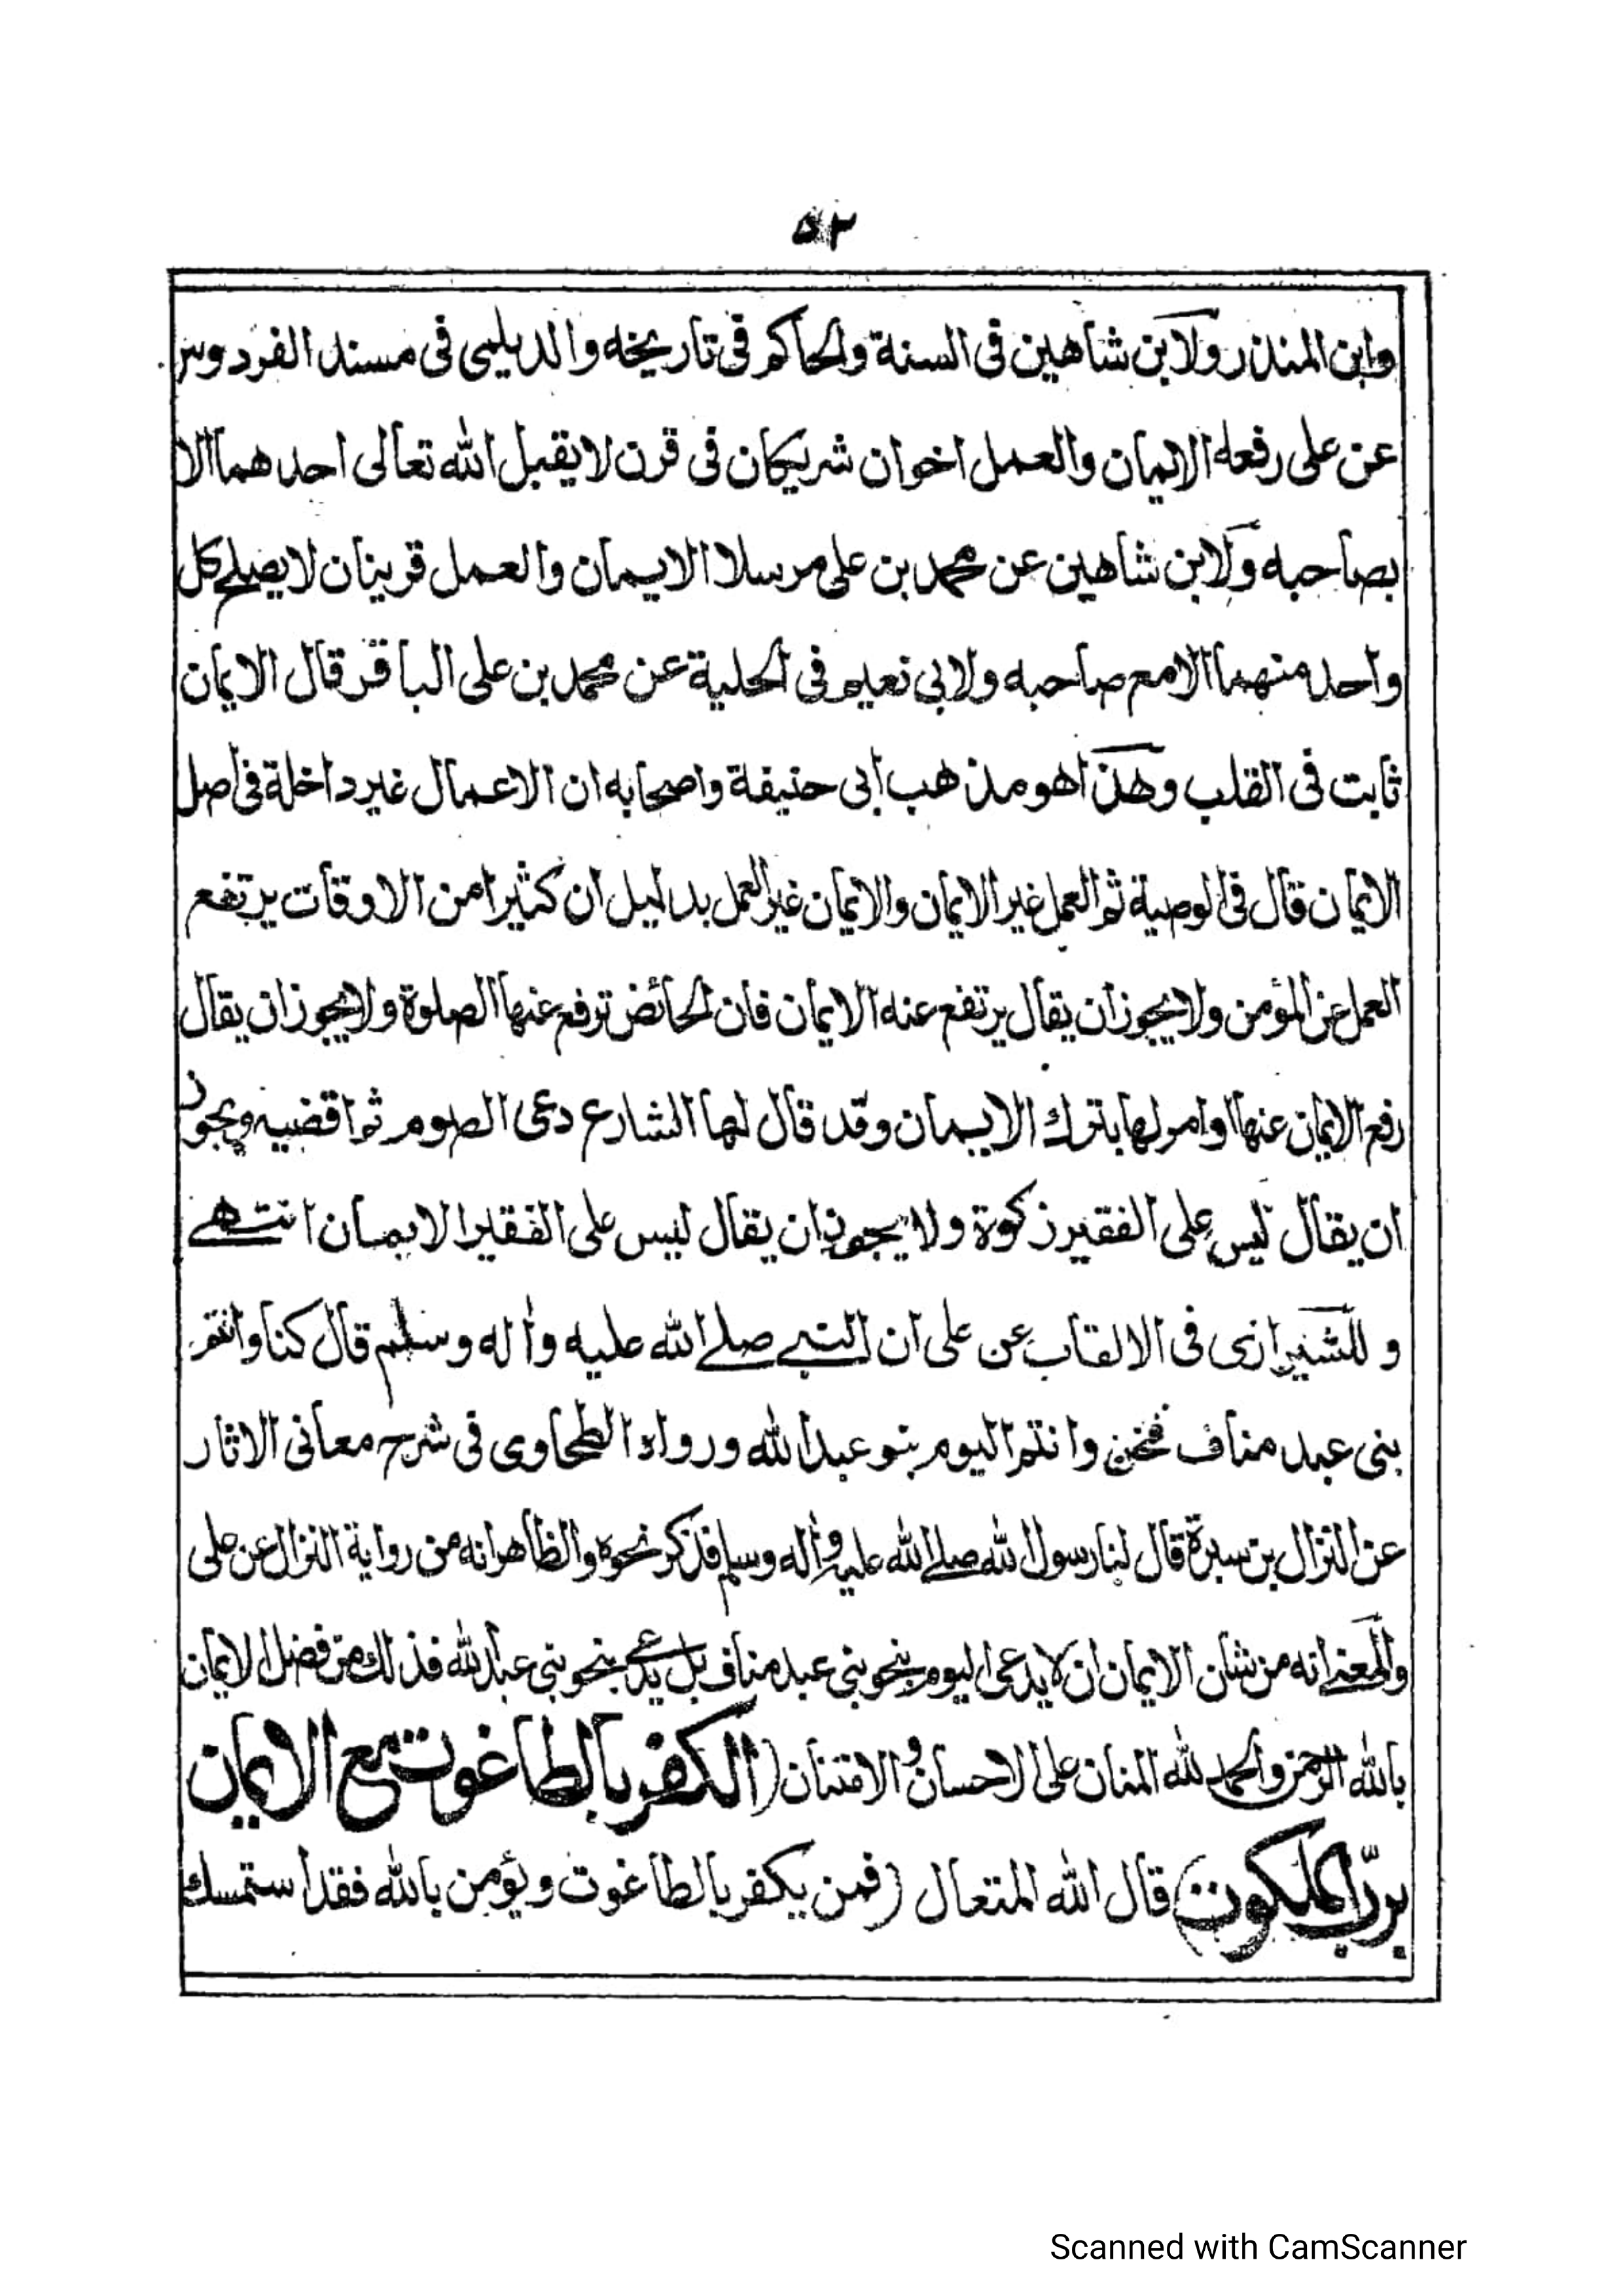 ٥٢
وابن المنذر ولابن شاهين فى السنة والحاكم فى تاريخه والديلمى فى مسند الفردوس
عن على رفعه الايمان والعمل اخوان شريكان فى قرن لا يقبل الله تعالى احدهما الا
بصاحبه ولابن شاهين عن محمد بن على مرسلا الايمان والعمل قرينان لا يصلح كل
واحد منهما الا مع صاحبه ولابى نعيم فى الحلية عن محمد بن على الباقر قال الايمان
ثابت فى القلب وهذا هو مذهب أبى حنيفة واصحابه ان الاعمال غير داخلة فى اصل
الايمان قال فى الوصية ثم العمل غير الايمان والايمان غير العمل بدليل ان كثيرا من الاوقات يرتفع
العمل عن المؤمن ولا يجوز ان يقال يرتفع عنه الايمان فان الحائض ترفع عنها الصلوة ولا يجوز ان يقال
رفع الايمان عنها او امر لها بترك الايمان وقد قال لها الشارع دعى الصوم ثم اقضيه ويجوز
ان يقال ليس على الفقير زكوة ولا يجوز ان يقال ليس على الفقير الايمان انتهے
و للشيرازى فى الالقاب عن على ان النبے صلے الله عليه واٰله وسلم قال كنا وانتم
بنى عبد مناف فنحن وانتم اليوم بنو عبد الله ورواه الطحاوى فى شرح معانى الاثار
عن النزال بن سبرة قال لنا رسول الله صلے الله عليه واٰله وسلم فذكر نحوه والظاهر انه من رواية النزال عن على
والمعنے انه من شان الايمان ان لا يدعى اليوم بنحو بنى عبد مناف بل يدعے بنحو بنى عبد الله فذلك من فضل الايمان
بالله الرحمن والحمد لله المنان على الاحسان والامتنان (الكفر بالطاغوت مع الايمان
بربّ الملكوت) قال الله المتعال (فمن يكفر بالطاغوت ويؤمن بالله فقد استمسك
Scanned with CamScanner